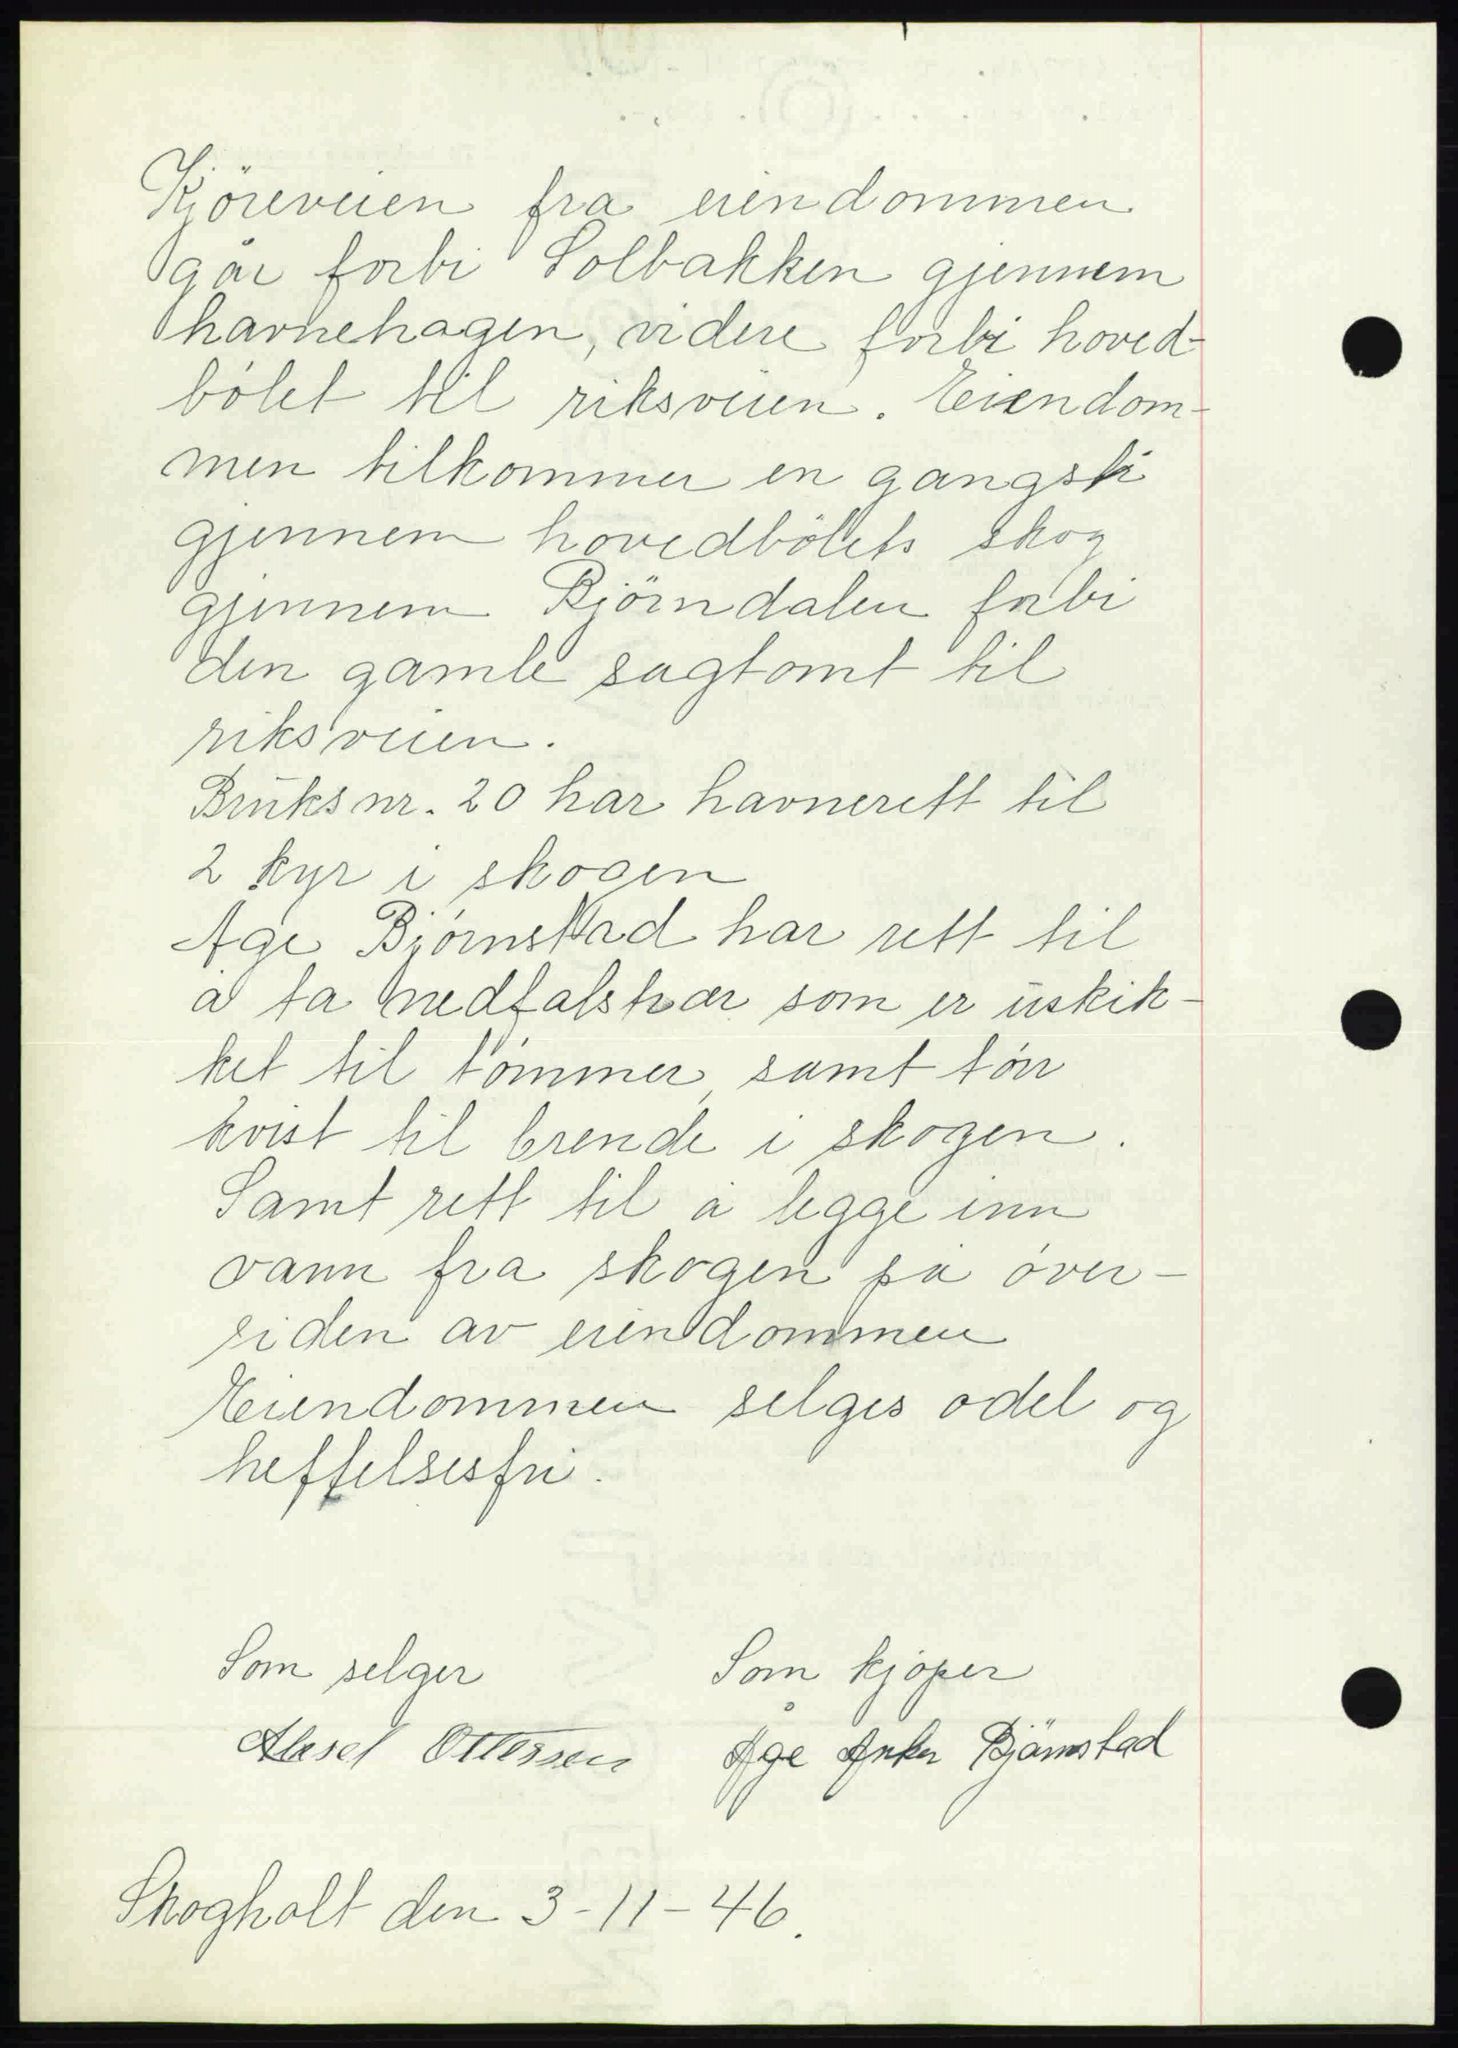 Kjöreveien fra eiendommen
går forbi Solbakken gjennem
havnehagen, videre forbi hoved-
bölet til riksveien. Eiendom-
men tilkommer en gangsti
gjennem hovedbölets skog
gjennem Björndalen forbi
den gamle sagtomt til
riksveien.
Bruks nr. 20 har havnerett til
2 kyr i skogen
Åge Bjørnstad har rett til
å ta nedfalstrær som er uskik-
ket til tömmer, samt törr
kvist til brende i skogen.
Samt rett til å legge inn
vann fra skogen på över-
siden av eiendommen
Eiendommen selges odel og
heftelsesfri.
Som selger Som kjøper
Aksel Ottersen Åge Anker Björnstad
Skogholt den 3-11-46.